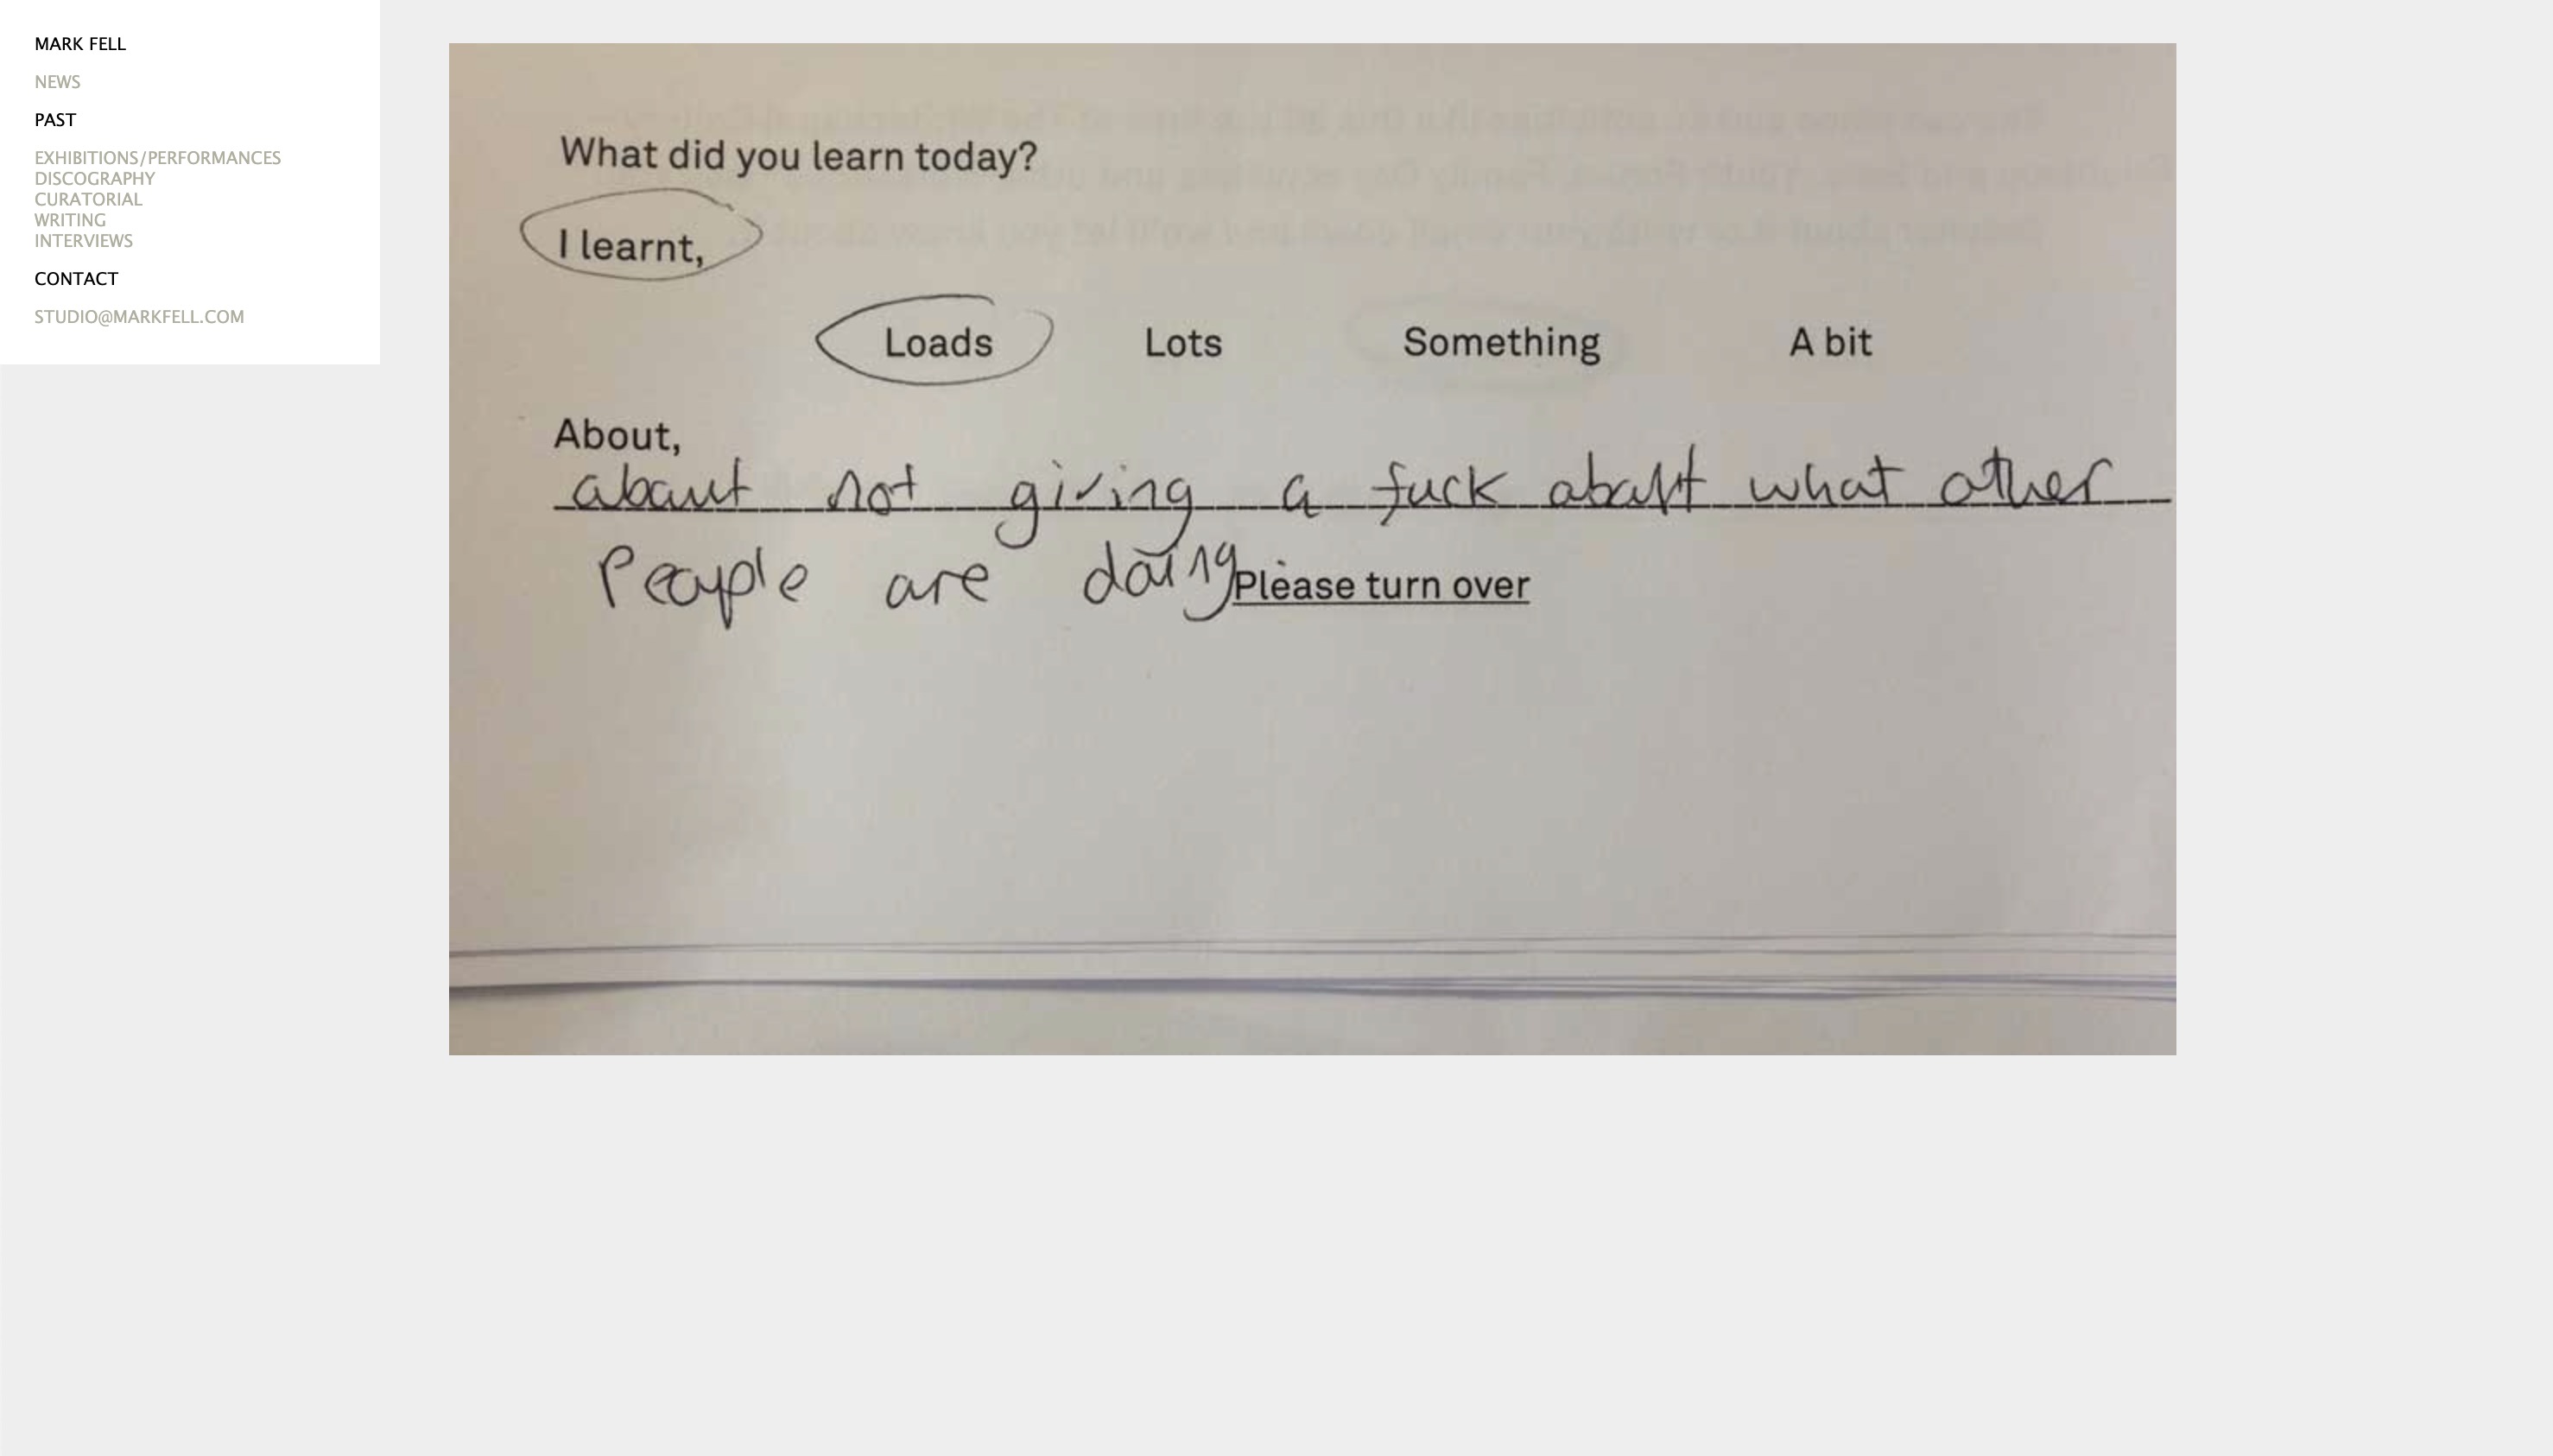 MARK FELL
NEWS
PAST
EXHIBITIONS/PERFORMANCES
DISCOGRAPHY
CURATORIAL
WRITING
INTERVIEWS
CONTACT
STUDIO@MARKFELL.COM
What did you learn today?
I learnt,
Loads Lots Something A bit
About,
about not giving a fuck about what other
People are doing Please turn over